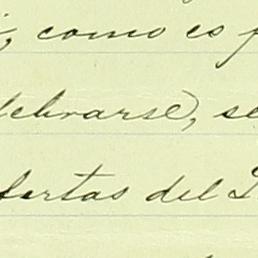 como es
lebrarse, se
fertas del